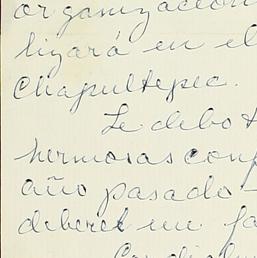 organización
lizará en el
Chapultepec.
Le debo
hermosas conf
año pasado
deberet un fa
Cordialm